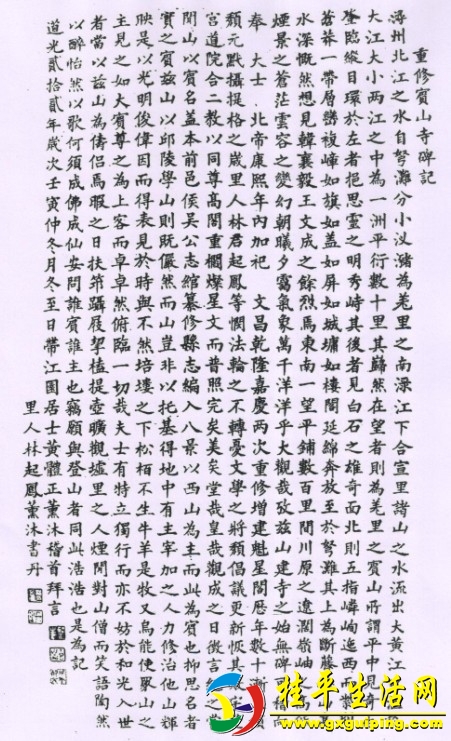 重修賓山寺碑記
潯州北江之水自弩灘分小汊瀦為羗里之南渌江下合宣里諸山之水流出大黃江
大江大小兩江之中為一洲平衍數十里其巋然在望者則為羗里之賓山所謂平中見奇
登臨縱目環於左者挹思靈之明秀峙其後者見白石之雄奇面北則五指嶙峋迤西而紫荊
蒼莽一帶層巒複嶂如旗如蓋如屏如城墉如樓閣延綿奔放至於弩灘其上為斷藤
水深慨然想見韓襄毅王文成之餘烈焉東南一望平鋪數百里間川原之遼濶嶺岫
煙景之蒼茫雲容之變幻朝曦夕靄氣象萬千洋洋乎大觀哉攷茲山建寺之始無碑可稽而
奉 大士 北帝康熙年內加祀 文昌乾隆嘉慶兩次重修增建魁星閣歷年數十漸
頹元黓攝提格之歲里人林君起鳳等憫法輪之不轉憂文學之將頹倡議更新恢其故
宮道院合二教以同尊高閣重欄燦星文而普照完矣美矣堂哉皇哉觀成之日徵言紀之
聞山以賓名蓋本前邑侯吳公志綰纂修縣志編入八景以西山為主而此為賓也抑思名者
實之賓茲山以邱陵學山則既儼然而山豈非以托基得地中有主宰加之人力修治他山輝
映是以光明俊偉因而得表見於時與不然培塿之下松栢不生牛羊是牧又烏能使眾山之
主見之如大賓尊之為上客而卓卓然俯臨一切哉夫士有特立獨行而亦不妨於和光入世
者當以茲山為儔侶焉暇之日扶笻躡屐挈榼提壺曠觀墟里之人煙閒對山僧而笑語陶然
以醉怡然以歌何須成佛成仙安問誰賓誰主也竊願與登山者同此浩浩也是為記
道光貳拾貳年歲次壬寅仲冬月冬至日帶江園居士黃體正薰沐稽首拜言
里人林起鳳薰沐書丹
桂平生活网
www.gxguiping.com